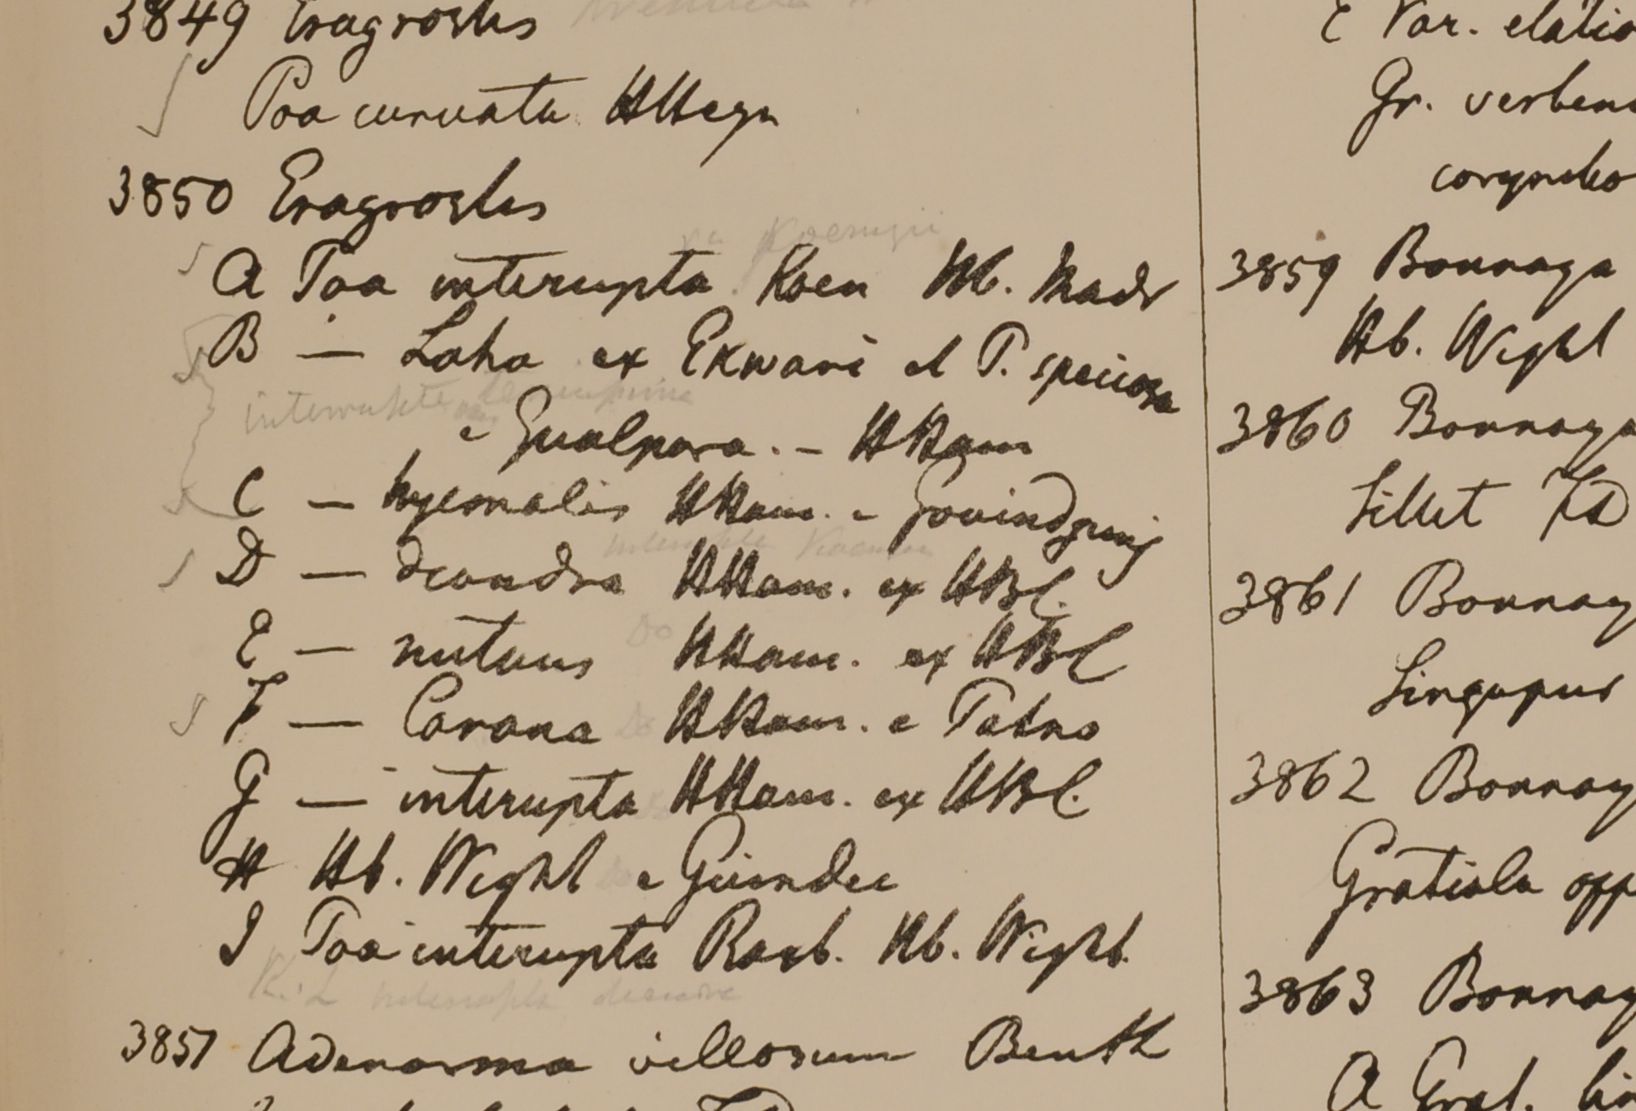 3849 Eragrostis
Poa curvata HHeyn
3850 Eragrostis
Koenigii
A Poa interupta Koen Hb. Madr
B — Laha ex Ekwari et P. speciosa
e Gualpara. – HHam
C — hyemalis HHam. e Govindgunj
D — diandra HHam. ex HBC.
E — nutans HHam. ex HBC
F — Carana HHam. e Patna
G — interupta HHam. ex HBC.
H Hb. Wight e
I Poa interupta Roxb. Hb. Wight
interrupta diandra
3851 Adenosma villosum Benth
E Var. elatio
Gr. verbena
corymbo
3859 Bonnaya
Hb. Wight
3860 Bonnaya
Sillet FD
3861 Bonnay
Singapur
3862 Bonnay
Gratiola opp
3863 Bonnay
A Grat. lin